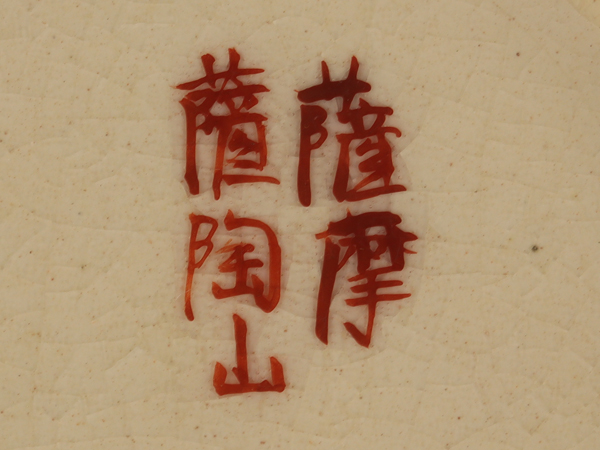 薩摩
薩陶山